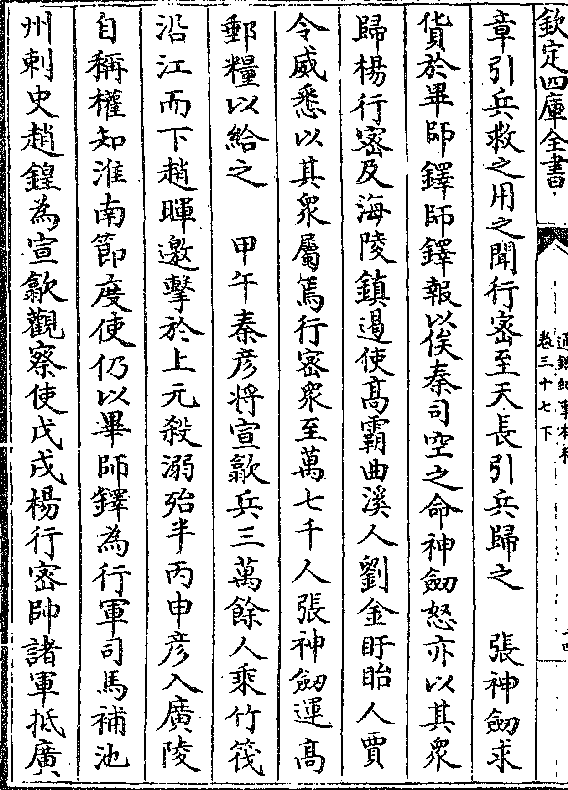 欽定四庫全書
通鑑紀事本末
卷三十七下
章引兵救之用之聞行密至天長引兵歸之　張神劒求
貨於畢師鐸師鐸報以俟秦司空之命神劒怒亦以其衆
歸楊行密及海陵鎮遏使髙霸曲溪人劉金盱眙人賈
令威悉以其衆屬焉行密衆至萬七千人張神劒運髙
郵糧以給之　甲午秦彦将宣歙兵三萬餘人乘竹筏
沿江而下趙暉邀擊於上元殺溺殆半丙申彦入廣陵
自稱權知淮南節度使仍以畢師鐸為行軍司馬補池
州刺史趙鍠為宣歙觀察使戊戌楊行密帥諸軍抵廣